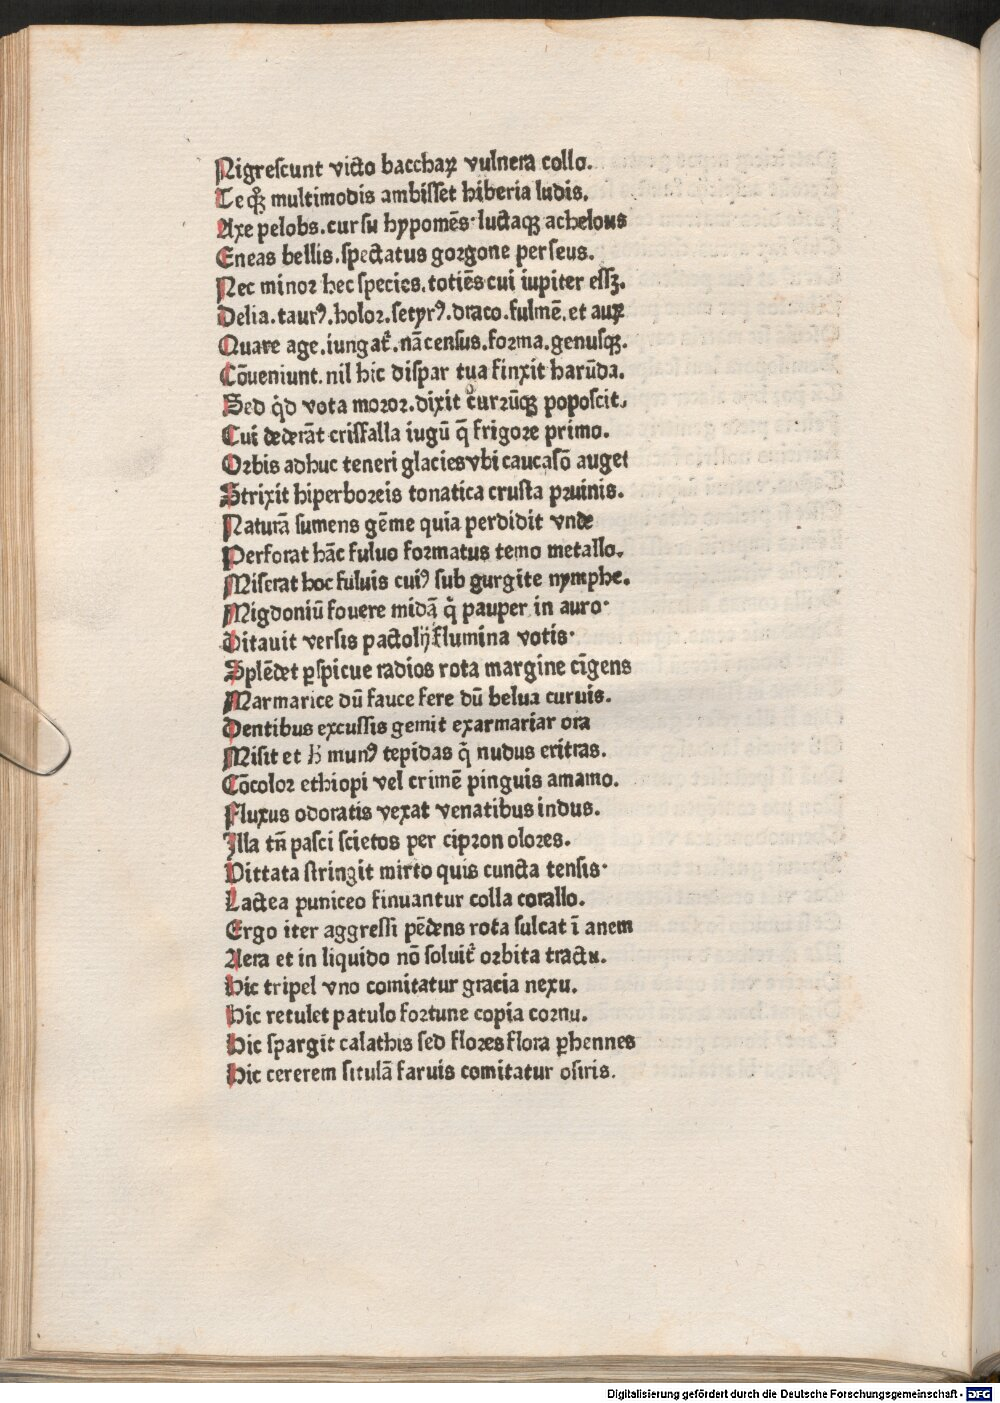 Nigrescunt victo bacchaꝝ vulnera collo.
Te qꝫ multimodis ambisset hiberia ludis.
Axe pelobs.cursu hypomēs·luctaqꝫ achelous
Eneas bellis.spectatus gorgone perseus.
Nec minor hec species.totiēs cui iupiter essꝫ.
Delia.taurꝰ.holor.setyrꝰ.draco.fulmē.et auꝝ
Quare age.iungat̃.nā census.forma.genusqꝫ.
Cōueniunt.nil hic dispar tua finxit harūda.
Sed qͥd vota moror.dixit currūqꝫ poposcit.
Cui dederāt cristalla iugū q̄ frigore primo.
Orbis adhuc teneri glacies vbi caucasō auget
Strixit hiperboreis tonatica crusta pruinis.
Naturā sumens gēme quia perdidit vnde
Perforat hāc fuluo formatus temo metallo.
Miserat hoc fuluis cuiꝰ sub gurgite nymphe.
Migdoniū fouere midā qͥ pauper in auro·
Ditauit versis pactolij flumina votis·
Splēdet ꝑspicue radios rota margine cīgens
Marmarice dū fauce fere dū belua curuis.
Dentibus excussis gemit exarmariar ora
Misit et ħ munꝰ tepidas qͥ nudus eritras.
Cōcolor ethiopi vel crimē pinguis amamo.
Fluxus odoratis vexat venatibus indus.
Illa tn̄ pasci scietos per cipron olores.
Vittata stringit mirto quis cuncta tensis·
Lactea puniceo finuantur colla corallo.
Ergo iter aggressi pēdens rota sulcat ī anem
Aera et in liquido nō soluit̃ orbita tractu.
Hic tripel vno comitatur gracia nexu.
Hic retulet patulo fortune copia cornu.
Hic spargit calathis sed flores flora ꝑhennes
Hic cererem situlā faruis comitatur osiris.
Digitalisierung gefördert durch die Deutsche Forschungsgemeinschaft - DFG